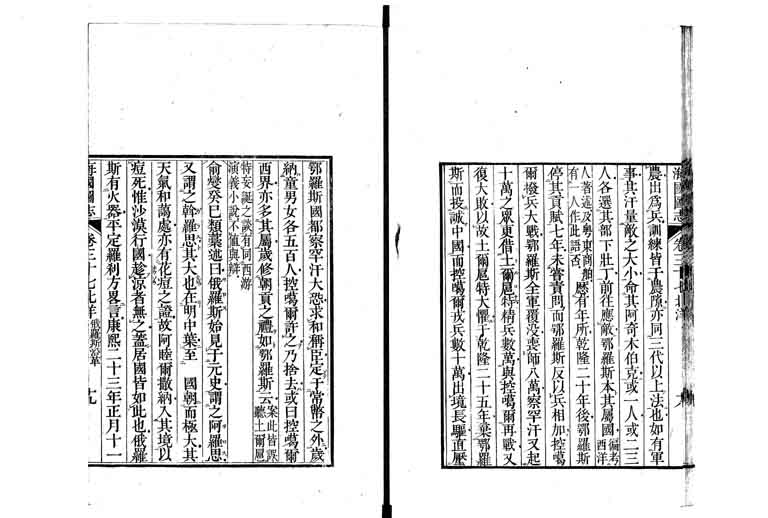 海國圖志 卷三十七 北洋
農出爲兵訓練皆于農隙亦同三代以上法也如有軍
事其汗量敵之大小命其阿奇木伯克或一人或二三
人各選其部下壯丁前往應敵鄂羅斯本其屬國徧考西洋
人著述及粤東商舶有一人作此語否曆有年所乾隆二十年後鄂羅斯
停其貢賦七年未嘗責問而鄂羅斯反以兵相加控噶
爾撥兵大戰鄂羅斯全軍覆没喪師八萬察罕汗又起
十萬之衆更借土爾扈特精兵數萬與控噶爾再戰又
復大敗以故土爾扈特大懼于乾隆二十五年棄鄂羅
斯而投誠中國而控噶爾戎兵數十萬出境長驅直壓
鄂羅斯國都察罕汗大恐求和稱臣定于常幣之外歲
納童男女各五百人控噶爾許之乃捨去或曰控噶爾
西界亦多其屬歲修朝貢之禮如鄂羅斯云案此皆誤聽土爾扈
特妄誕之談有同西游演義小說不值與辯
俞燮癸巳類藁述曰俄羅斯始見于元史謂之阿羅思
又謂之斡羅思其大也在明中葉至 國朝而極大其
天氣和藹處亦有花痘之證故阿睦爾撒納入其境以
痘死惟沙漠行國趁涼者無之蓋居國皆如此也俄羅
斯有火器平定羅刹方畧言康熙二十三年正月十一
海國圖志 卷三十七北洋 俄羅斯沿革 十九